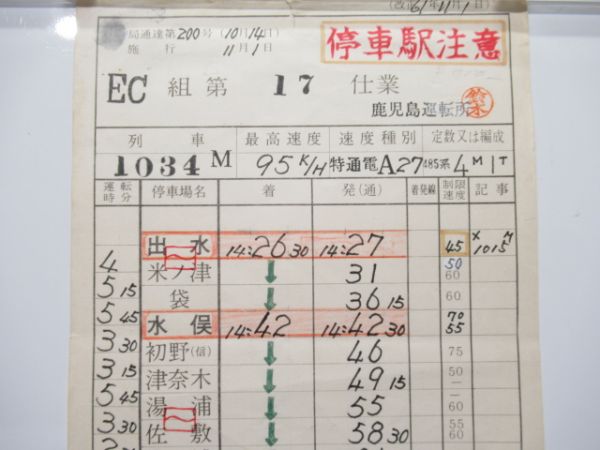 (改正61年11月1日)
局通達第200号 (10月14日)
施行 11月1日
停車駅注意
EC 組第 17 仕業
鹿児島運転所
鈴木
列車 最高速度 速度種別 定数又は編成
1034M 95K/H 特通電A27 485系4M1T
運転時分 停車場名 着 発(通) 着発線 制限速度 記事
出水 14:26 30 14:27 45 × M 1015
4 米ノ津 ↓ 31 50 60
5 15 袋 ↓ 36 15 60
5 45 水俣 14:42 14:42 30 70 55
3 30 初野(信) ↓ 46 75
3 15 津奈木 ↓ 49 15 50 -
5 45 湯浦 ↓ 55 - 60
3 30 佐敷 ↓ 58 30 55 60